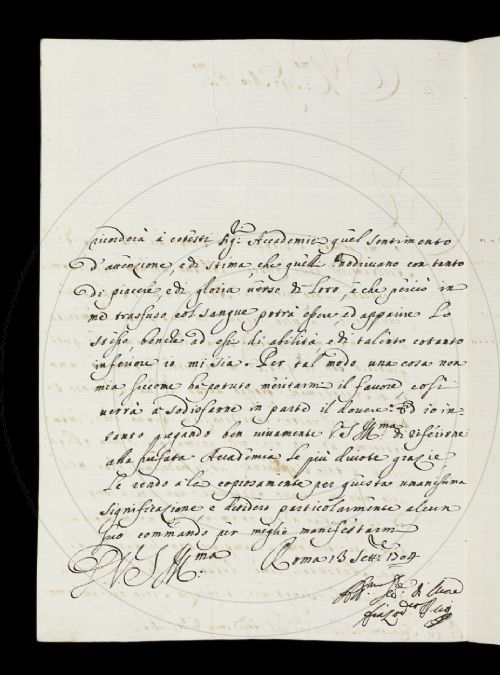 ricorderà à cotesti Sig.ri Accademici quel sentimento
d'attenzione, e di stima, che quelli nodrivano con tanto
di piacere, e di gloria verso di loro, e che perciò in
me trasfuso col sangue potrà essere, ed apparire lo
stesso, benche ad essi di abilità e di talento cotanto
inferiore io mi sia. Per tal modo una cosa non
mia siccome hà potuto meritarmi il favore, così
verrà a sodisfarne in parte il dovere. Ed io in-
tanto pregando ben vivamente V.S. Ill.ma di riferirne
alla prefata Accademia le più divote grazie,
le rendo a lei copiosamente per questa umanissima
significazione, e desidero particolarmente alcun
suo commando per meglio manifestarmi
D V.S. Ill.ma Roma 13 Sett.re 1704